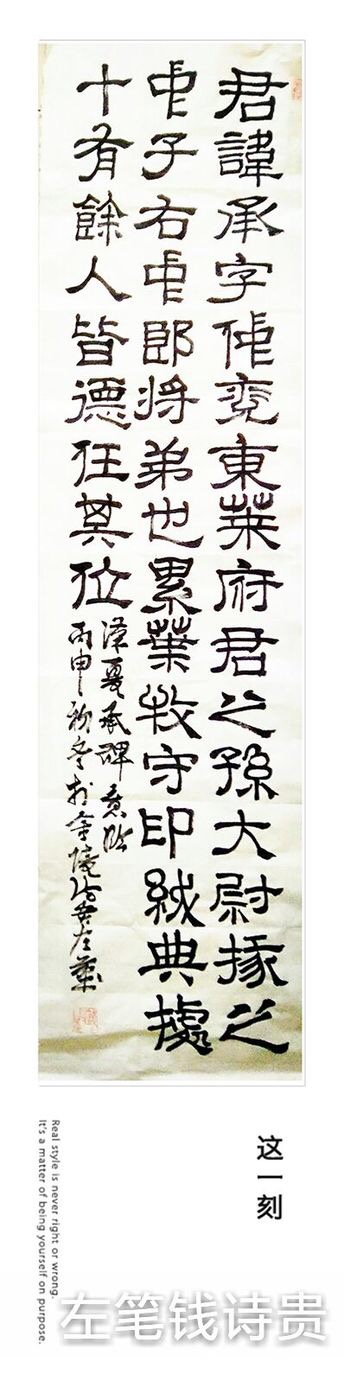 君諱承字仲兖東萊府君之孫大尉掾之
中子右中郎将弟也累葉牧守印紱典據
十有餘人皆德任其位
漢夏承碑意臨
丙申初冬於金陵
这一刻
Real style is never right or wrong.
It's a matter of being yourself on purpose.
左笔钱诗贵